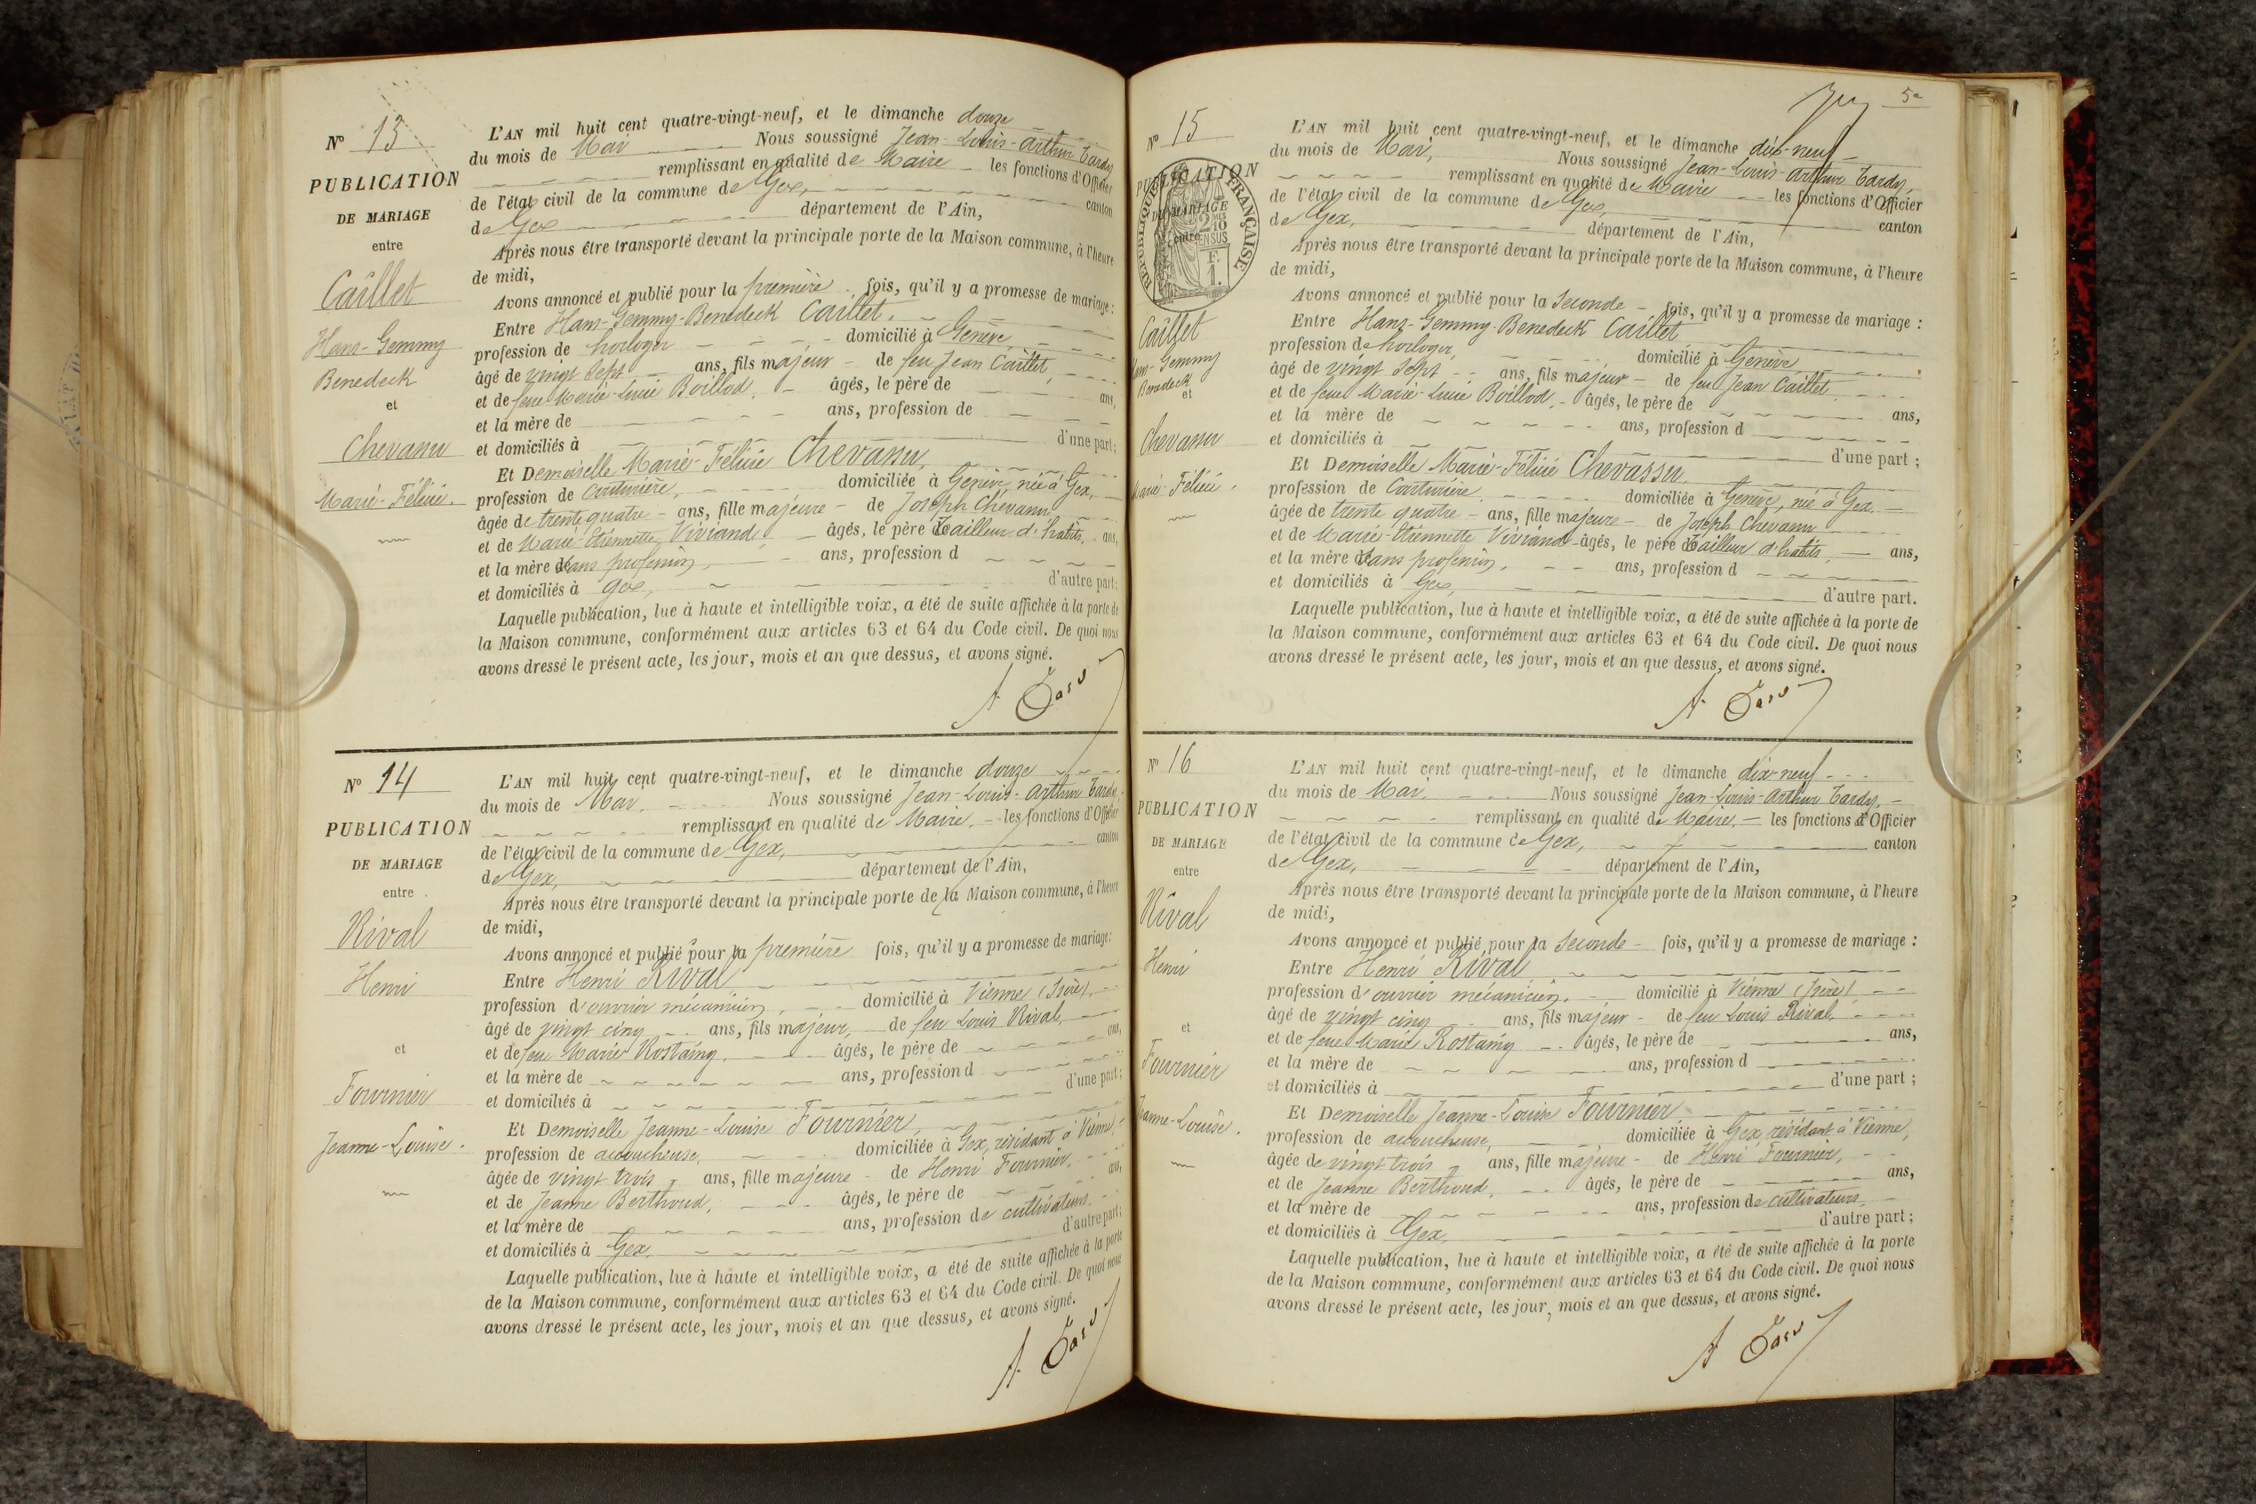 N° 13
PUBLICATION
DE MARIAGE
entre
Caillet
Hans-Gemmy
Benedeck
et
Chevassu
Marie-Félicie.
L'AN mil huit cent quatre-vingt-neuf, et le dimanche douze
du mois de Mai Nous soussigné Jean-Louis-Arthur Tardy,
remplissant en qualité de Maire les fonctions d'Officier
de l'état civil de la commune de Gex, canton
de Gex département de l'Ain,
Après nous être transporté devant la principale porte de la Maison commune, à l'heure
de midi,
Avons annoncé et publié pour la première fois, qu'il y a promesse de mariage :
Entre Hans-Gemmy-Benedeck Caillet,
profession de horloger domicilié à Genève,
âgé de vingt sept ans, fils majeur de feu Jean Caillet,
et de feue Marie-Lucie Boillod, âgés, le père de ans,
et la mère de ans, profession de
et domiciliés à d'une part ;
Et Demoiselle Marie-Félicie Chevassu,
profession de Couturière, domiciliée à Genève, née à Gex,
âgée de trente quatre ans, fille majeure de Joseph Chevassu
et de Marie-Etiennette Viviand âgés, le père de tailleur d'habits, ans,
et la mère de sans profession, ans, profession d
et domiciliés à Gex, d'autre part ;
Laquelle publication, lue à haute et intelligible voix, a été de suite affichée à la porte de
la Maison commune, conformément aux articles 63 et 64 du Code civil. De quoi nous
avons dressé le présent acte, les jour, mois et an que dessus, et avons signé.
A. Tardy
N° 14
PUBLICATION
DE MARIAGE
entre
Rival
Henri
et
Fournier
Jeanne-Louise.
L'AN mil huit cent quatre-vingt-neuf, et le dimanche douze
du mois de Mai, Nous soussigné Jean-Louis-Arthur Tardy,
remplissant en qualité de Maire, les fonctions d'Officier
de l'état civil de la commune de Gex, canton
de Gex, département de l'Ain,
Après nous être transporté devant la principale porte de la Maison commune, à l'heure
de midi,
Avons annoncé et publié pour la première fois, qu'il y a promesse de mariage :
Entre Henri Rival
profession d'ouvrier mécanicien, domicilié à Vienne (Isère),
âgé de vingt cinq ans, fils majeur, de feu Louis Rival,
et de feue Marie Rostaing, âgés, le père de ans,
et la mère de ans, profession d
et domiciliés à d'une part ;
Et Demoiselle Jeanne-Louise Fournier,
profession de accoucheuse, domiciliée à Gex, résidant à Vienne,
âgée de vingt trois ans, fille majeure de Henri Fournier,
et de Jeanne Berthoud, âgés, le père de ans,
et la mère de ans, profession de cultivateurs
et domiciliés à Gex, d'autre part ;
Laquelle publication, lue à haute et intelligible voix, a été de suite affichée à la porte
de la Maison commune, conformément aux articles 63 et 64 du Code civil. De quoi nous
avons dressé le présent acte, les jour, mois et an que dessus, et avons signé.
A. Tardy
5e
N° 15
PUBLICATION
DE MARIAGE
entre
RÉPUBLIQUE FRANÇAISE
2 DMES 10
EN SUS
F.
1.
Caillet
Hans-Gemmy
Benedeck
et
Chevassu
Marie-Félicie.
L'AN mil huit cent quatre-vingt-neuf, et le dimanche dix-neuf
du mois de Mai, Nous soussigné Jean-Louis-Arthur Tardy,
remplissant en qualité de Maire les fonctions d'Officier
de l'état civil de la commune de Gex, canton
de Gex, département de l'Ain,
Après nous être transporté devant la principale porte de la Maison commune, à l'heure
de midi,
Avons annoncé et publié pour la seconde fois, qu'il y a promesse de mariage :
Entre Hans-Gemmy-Benedeck Caillet
profession de horloger, domicilié à Genève,
âgé de vingt sept ans, fils majeur de feu Jean Caillet
et de feue Marie-Lucie Boillod, âgés, le père de ans,
et la mère de ans, profession d
et domiciliés à d'une part ;
Et Demoiselle Marie-Félicie Chevassu,
profession de Couturière, domiciliée à Genève, née à Gex
âgée de trente quatre ans, fille majeure de Joseph Chevassu
et de Marie-Etiennette Viviand âgés, le père de tailleur d'habits, ans,
et la mère de sans profession, ans, profession d
et domiciliés à Gex, d'autre part.
Laquelle publication, lue à haute et intelligible voix, a été de suite affichée à la porte de
la Maison commune, conformément aux articles 63 et 64 du Code civil. De quoi nous
avons dressé le présent acte, les jour, mois et an que dessus, et avons signé.
A. Tardy
N° 16
PUBLICATION
DE MARIAGE
entre
Rival
Henri
et
Fournier
Jeanne-Louise.
L'AN mil huit cent quatre-vingt-neuf, et le dimanche dix-neuf
du mois de Mai, Nous soussigné Jean-Louis-Arthur Tardy,
remplissant en qualité de Maire, les fonctions d'Officier
de l'état civil de la commune de Gex, canton
de Gex, département de l'Ain,
Après nous être transporté devant la principale porte de la Maison commune, à l'heure
de midi,
Avons annoncé et publié pour la seconde fois, qu'il y a promesse de mariage :
Entre Henri Rival
profession d'ouvrier mécanicien, domicilié à Vienne (Isère)
âgé de vingt cinq ans, fils majeur de feu Louis Rival,
et de feue Marie Rostaing âgés, le père de ans,
et la mère de ans, profession d
et domiciliés à d'une part ;
Et Demoiselle Jeanne-Louise Fournier
profession de accoucheuse, domiciliée à Gex, résidant à Vienne,
âgée de vingt trois ans, fille majeure de Henri Fournier,
et de Jeanne Berthoud, âgés, le père de ans,
et la mère de ans, profession de cultivateurs,
et domiciliés à Gex, d'autre part ;
Laquelle publication, lue à haute et intelligible voix, a été de suite affichée à la porte
de la Maison commune, conformément aux articles 63 et 64 du Code civil. De quoi nous
avons dressé le présent acte, les jour, mois et an que dessus, et avons signé.
A. Tardy